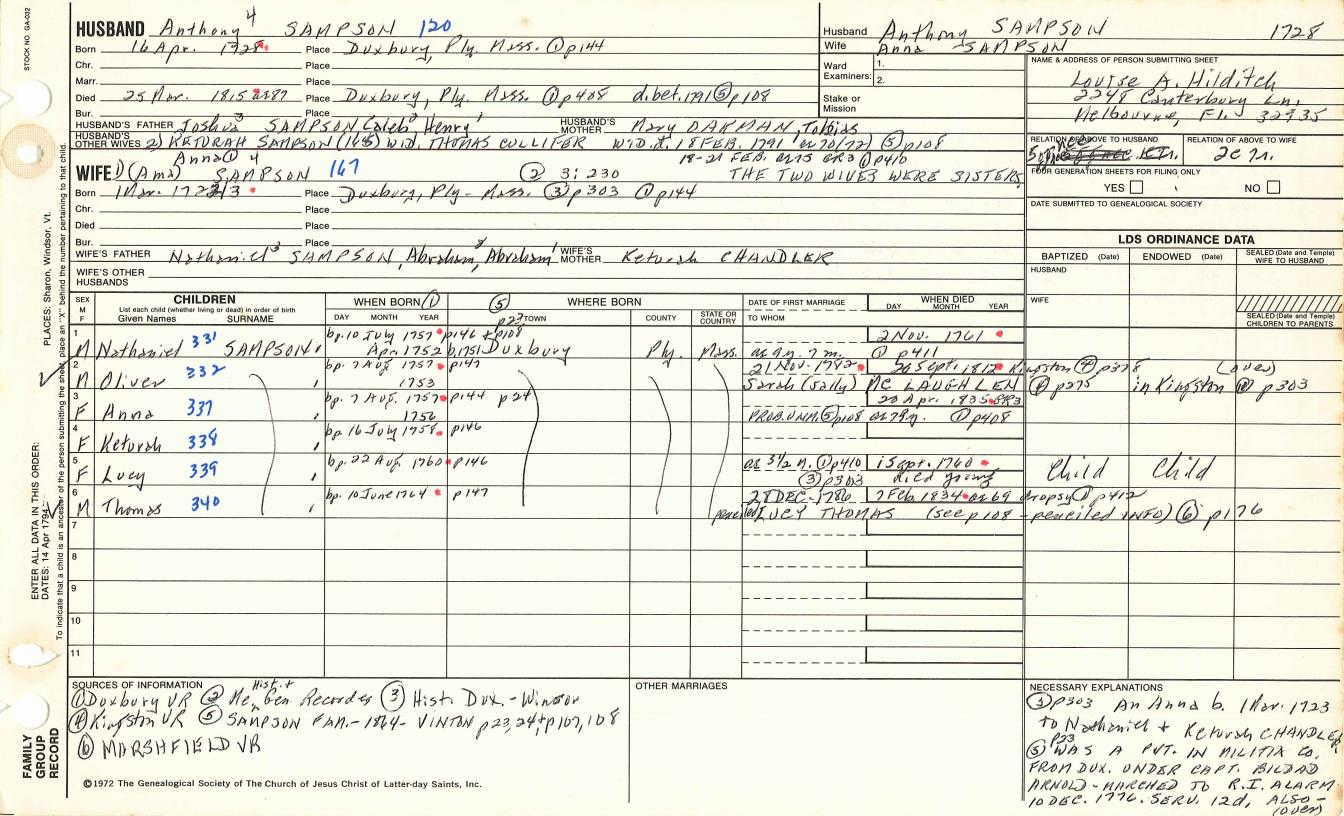 STOCK NO. GA-032
HUSBAND Anthony 4 SAMPSON 120
Born 16 Apr. 1728 Place Duxbury, Ply. Mass. ① p144
Chr. Place
Marr. Place
Died 25 Mar. 1815 ae 87 Place Duxbury, Ply. Mass. ① p408 d. bet. 1791 ⑤ p108
Bur. Place
HUSBAND'S FATHER Joshua 3 SAMPSON Caleb 2, Henry 1 HUSBAND'S MOTHER Mary OAKMAN, Tobias
HUSBAND'S OTHER WIVES 2) KETURAH SAMPSON (165) WID. THOMAS CULLIFER WID. d. 18 FEB. 1791 ae 70/72) ⑤ p108
18-21 FEB. ae 75 GR3 ① p410
Anna ① 4
WIFE 1) (Ama) SAMPSON 167 ② 3: 230 THE TWO WIVES WERE SISTERS
Born 1 Mar. 1722/3 Place Duxbury, Ply- Mass. ③ p303 ① p144
Chr. Place
Died Place
Bur. Place
WIFE'S FATHER Nathaniel 3 SAMPSON, Abraham 2, Abraham 1 WIFE'S MOTHER Keturah CHANDLER
WIFE'S OTHER HUSBANDS
Husband Anthony SAMPSON 1728
Wife Anna SAMPSON
Ward 1.
Examiners: 2.
Stake or Mission
NAME & ADDRESS OF PERSON SUBMITTING SHEET
Louise A. Hilditch
2248 Canterbury Ln.
Melbourne, Fl. 32935
RELATION OF ABOVE TO HUSBAND RELATION OF ABOVE TO WIFE
FOUR GENERATION SHEETS FOR FILING ONLY
YES NO
DATE SUBMITTED TO GENEALOGICAL SOCIETY
LDS ORDINANCE DATA
BAPTIZED (Date) ENDOWED (Date) SEALED (Date and Temple) WIFE TO HUSBAND
HUSBAND
WIFE
SEALED (Date and Temple) CHILDREN TO PARENTS
SEX M F
CHILDREN
List each child (whether living or dead) in order of birth
Given Names SURNAME
WHEN BORN ① ⑤ WHERE BORN
DAY MONTH YEAR p23 TOWN COUNTY STATE OR COUNTRY
DATE OF FIRST MARRIAGE
TO WHOM
WHEN DIED
DAY MONTH YEAR
1 bp. 10 July 1757 p146 + p108 2 Nov. 1761
M Nathaniel 331 SAMPSON, Apr. 1752 b. 1751 Duxbury Ply. Mass. ae 9y. 7m. ① p411
2 bp. 7 Aug. 1757 p147 21 Nov. 1782 26 Sept. 1812 Kingston ④ p378 (over)
M Oliver 332 , 1753 Sarah (Sally) Mc LAUGHLEN ④ p275 in Kingston p303
3 bp. 7 Aug. 1757 p144 p24 20 Apr. 1835 GR3
F Anna 337 , 1756 PROB. UNM. ⑤ p108 ae 79y. ① p408
4 bp. 16 July 1758 p146
F Keturah 338 ,
5 bp. 22 Aug. 1760 p146 ae 3½ m. ① p410 1 Sept. 1760 Child Child
F Lucy 339 , ③ p303 died young
6 bp. 10 June 1764 p147 28 DEC. 1786 7 Feb. 1834 ae 69 dropsy ① p412
M Thomas 340 penciled LUCY THOMAS (see p108 - penciled INFO) ⑥ p176
7
8
9
10
11
SOURCES OF INFORMATION
① Duxbury VR ② Me. Hist. + Gen Recorder ③ Hist. Dux. - Winsor
④ Kingston VR ⑤ SAMPSON FAM. - 1864 - VINTON p23, 24, + p107, 108
⑥ MARSHFIELD VR
OTHER MARRIAGES
NECESSARY EXPLANATIONS
③ p303 An Anna b. 1 Mar. 1723
to Nathaniel + Keturah CHANDLER
p23
⑤ WAS A PVT. IN MILITIA CO.
FROM DUX. UNDER CAPT. BILDAD
ARNOLD - MARCHED TO R.I. ALARM
10 DEC. 1776. SERV. 12d, ALSO -
(over)
©1972 The Genealogical Society of The Church of Jesus Christ of Latter-day Saints, Inc.
FAMILY GROUP RECORD
ENTER ALL DATA IN THIS ORDER:
DATES: 14 Apr 1794
PLACES: Sharon, Windsor, Vt.
To indicate that a child is an ancestor of the person submitting the sheet, place an "X" behind the number pertaining to that child.